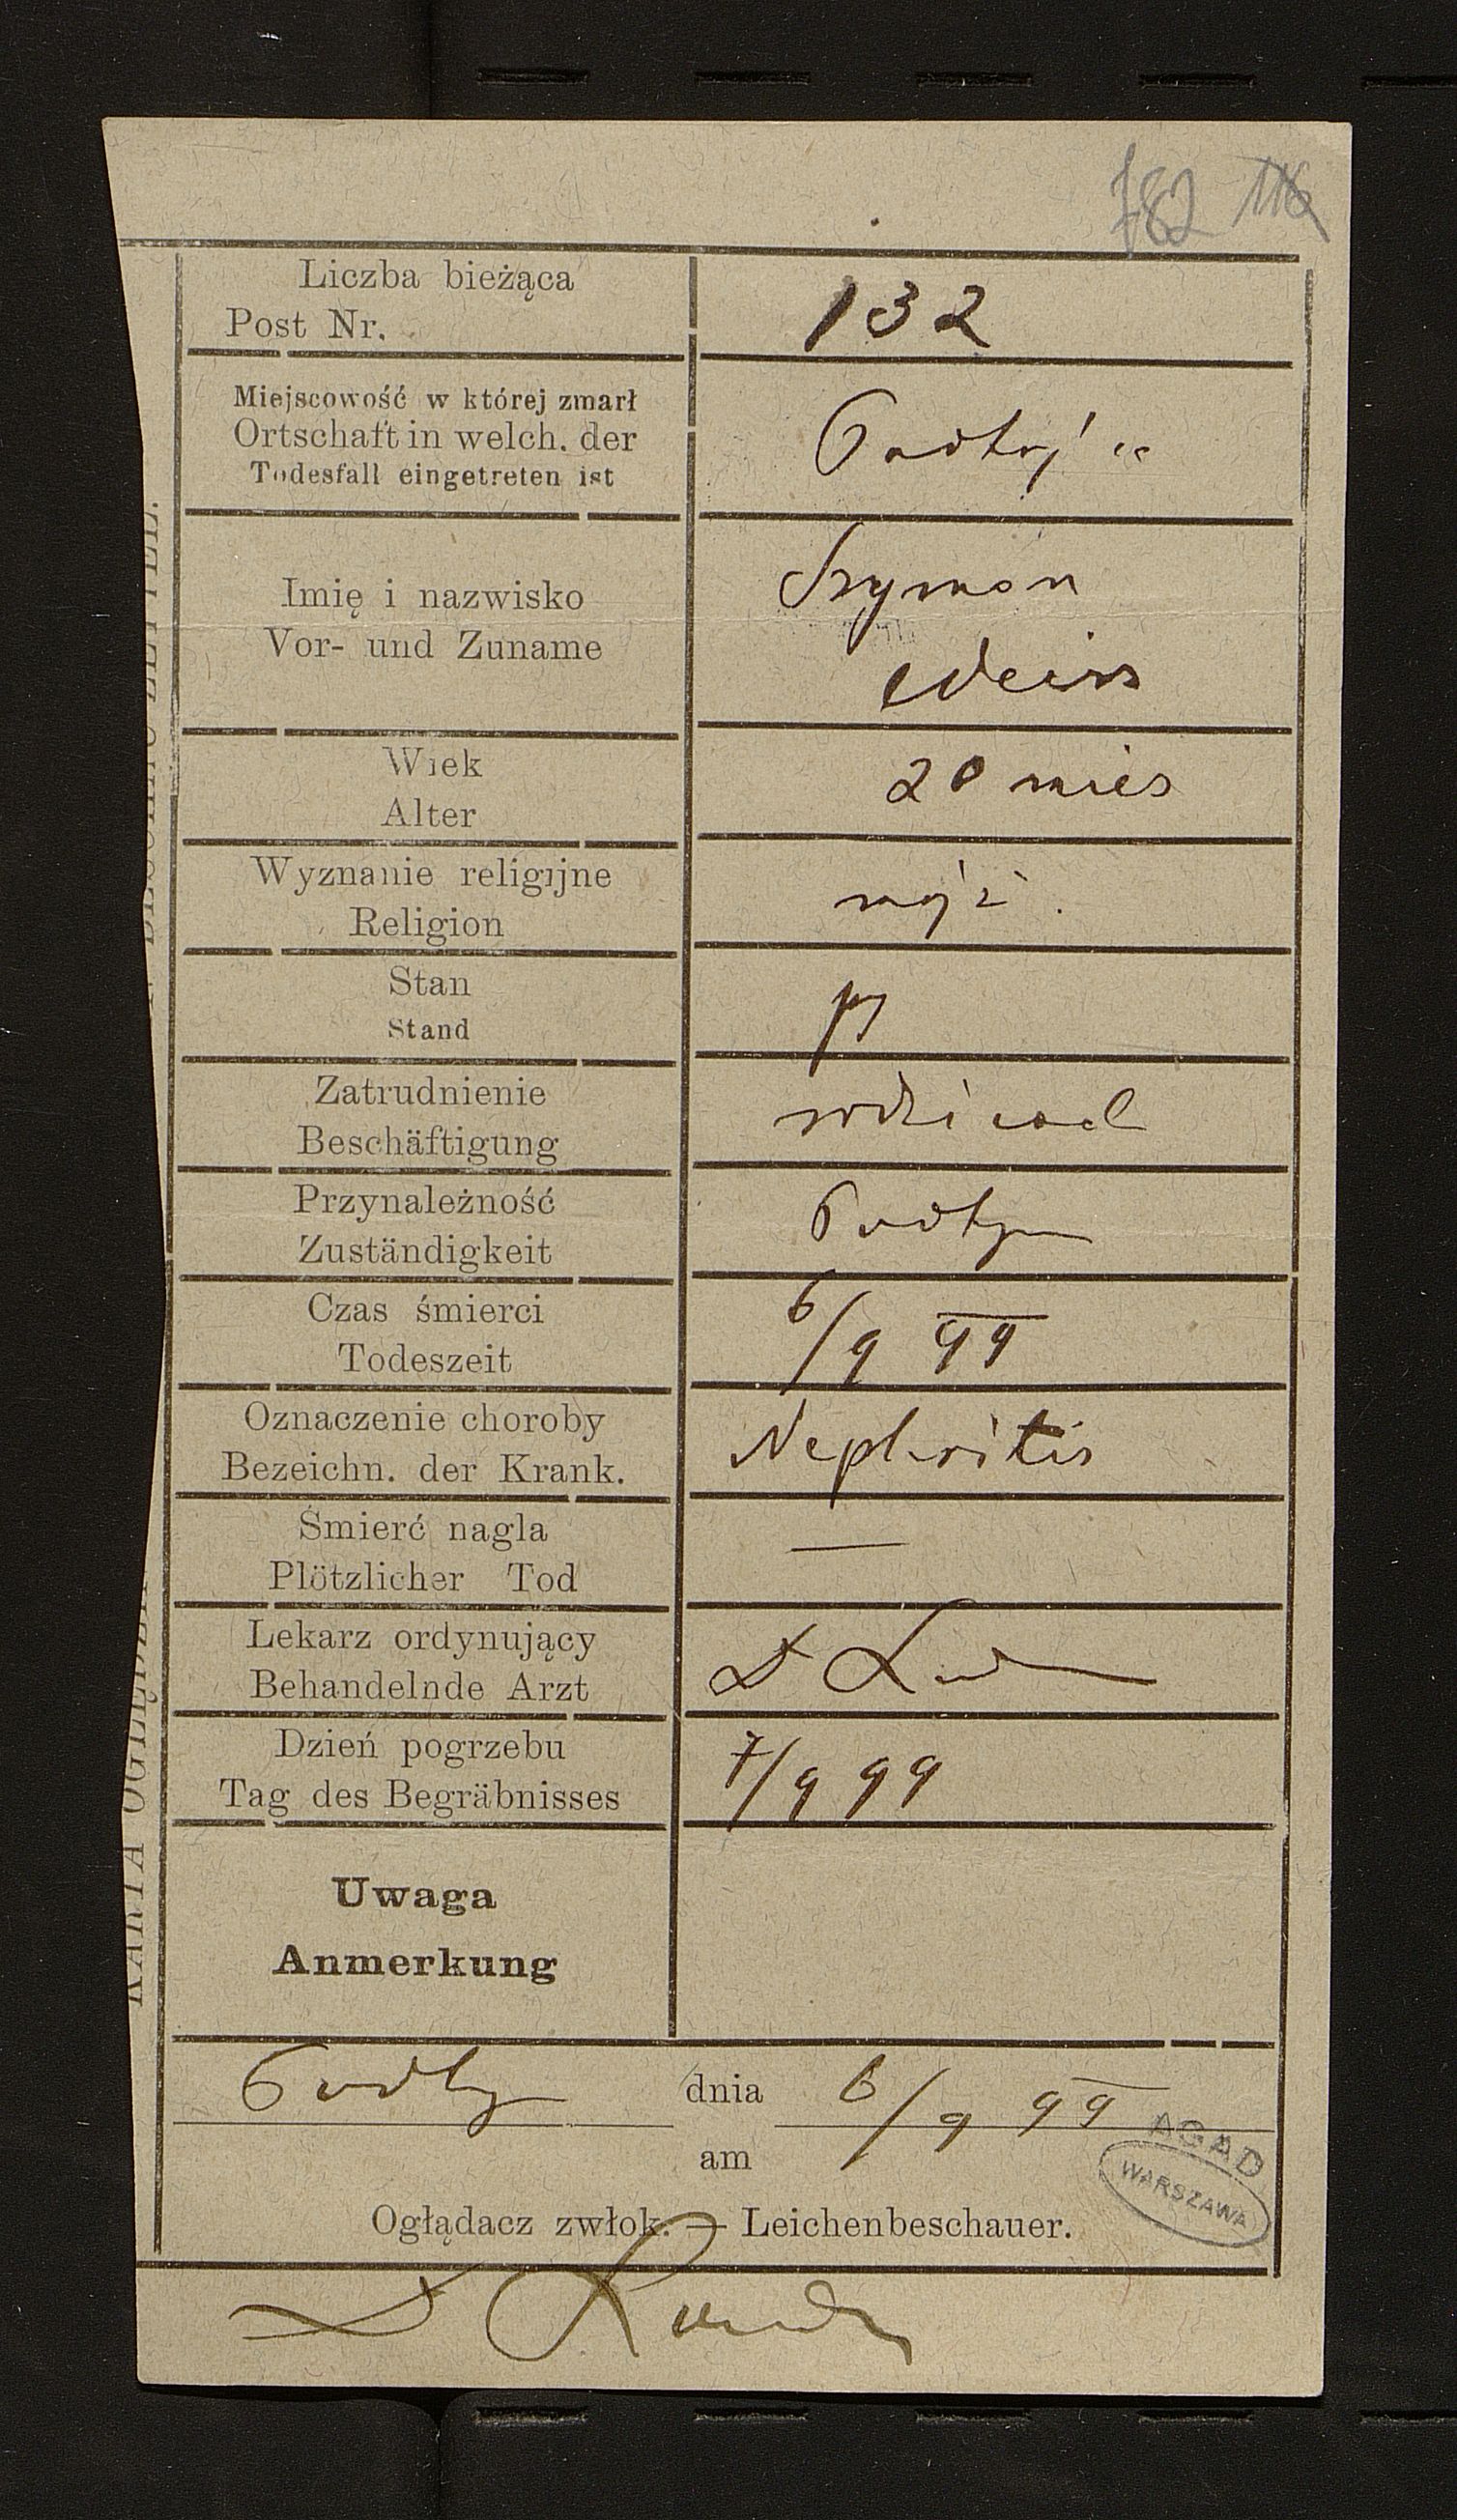 782 116
Liczba bieżąca
Post Nr.
132
Miejscowość w której zmarł
Ortschaft in welch. der
Todesfall eingetreten ist
Imię i nazwisko
Vor- und Zuname
Szymon
Wiek
Alter
20 mies
Wyznanie religijne
Religion
mojż.
Stan
Stand
Zatrudnienie
Beschäftigung
Przynależność
Zuständigkeit
Czas śmierci
Todeszeit
6/9 99
Oznaczenie choroby
Bezeichn. der Krank.
Nephritis
Śmierć nagla
Plötzlicher Tod
—
Lekarz ordynujący
Behandelnde Arzt
Dr
Dzień pogrzebu
Tag des Begräbnisses
7/9 99
Uwaga
Anmerkung
dnia 6/9 99
am
AGAD
WARSZAWA
Oglądacz zwłok. — Leichenbeschauer.
Dr
KARTA OGLĘDZIN